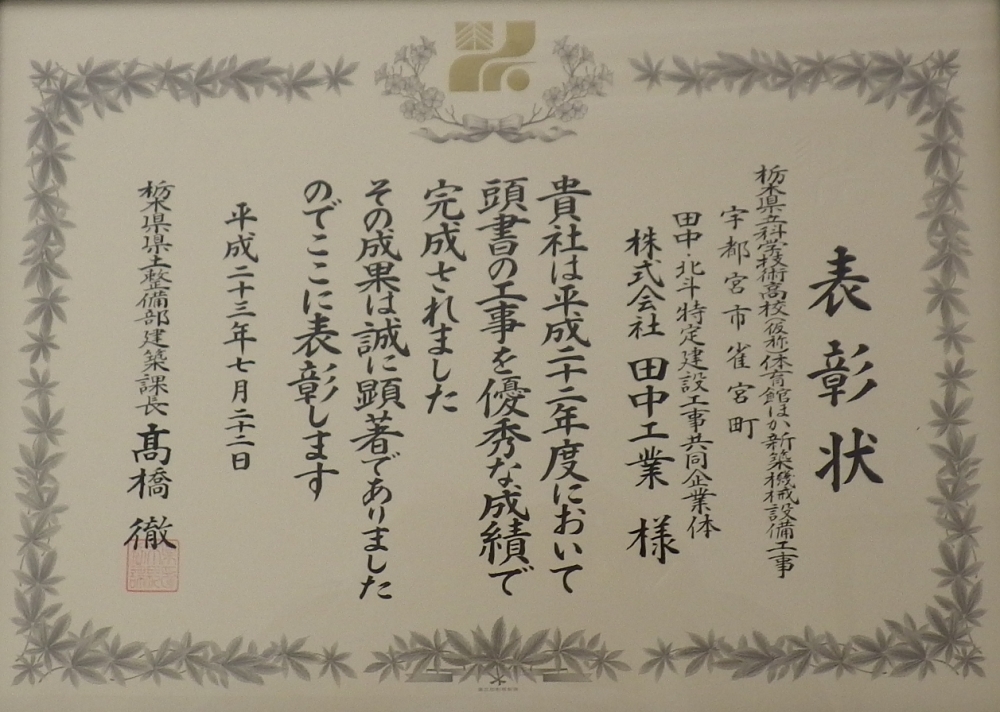 表彰状
栃木県立科学技術高校(仮称)体育館ほか新築機械設備工事
宇都宮市雀宮町
田中・北斗特定建設工事共同企業体
株式会社 田中工業 様
貴社は平成二十二年度において
頭書の工事を優秀な成績で
完成されました
その成果は誠に顕著でありました
のでここに表彰します
平成二十三年七月二十二日
栃木県県土整備部建築課長 髙橋 徹